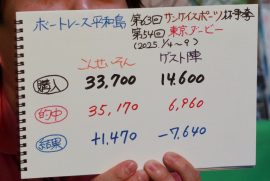 ボートレース平和島 第63回サンケイスポーツ杯争奪
第54回東京ダービー
(2025 1/4~9)
こんせいそん ゲスト陣
購入 33,700 14,600
的中 35,170 6,960
結果 +1,470 -7,640